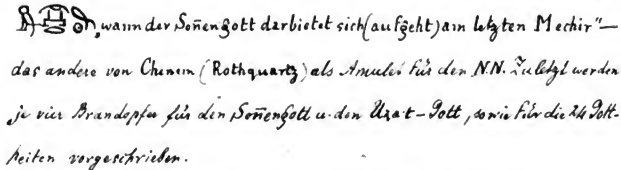 „wann der Soñengott darbietet sich (aufgeht) am letzten Mechir" —
das andere von Chenem (Rothquartz) als Amulet für den N.N. Zuletzt werden
je vier Brandopfer für den Soñengott u. den Uza-t-Gott, sowie für die 24 Gott-
heiten vorgeschrieben.